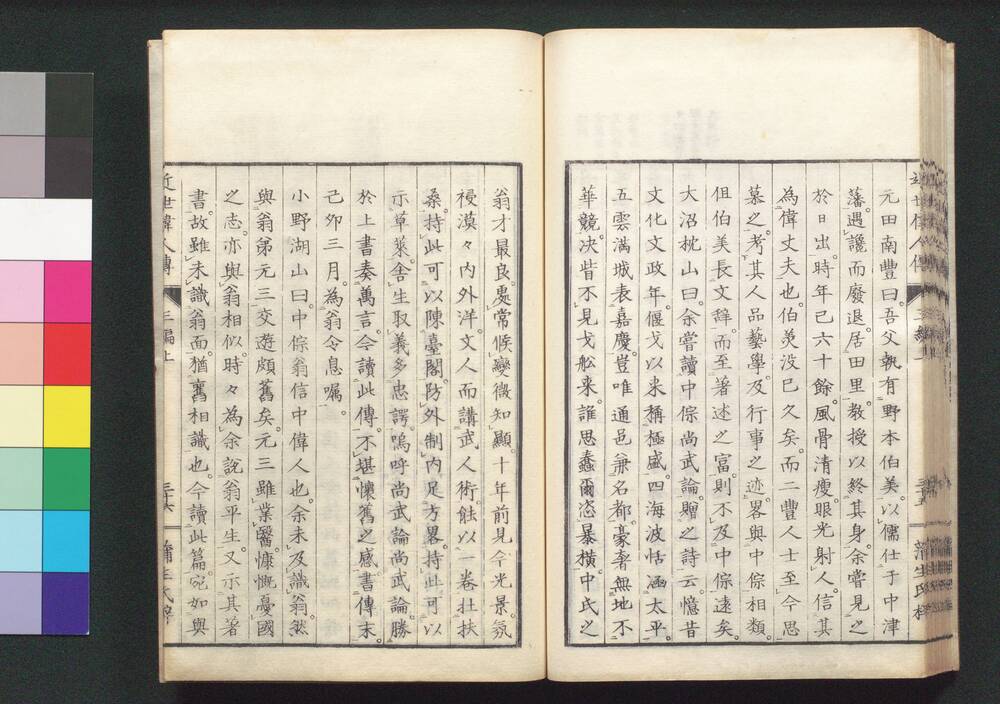 元田南豐曰。吾父執有野本伯美。以儒仕于中津
藩。遇讒而廢退居田里。教授以終其身。余嘗見之
於日出。時年已六十餘。風骨清瘦。眼光射人。信其
為偉丈夫也。伯美沒已久矣。而二豐人士至今思
慕之。考其人品藝學。及行事之迹。畧與中倧相類。
但伯美長文辭。而至著述之富。則不及中倧遠矣。
大沼枕山曰。余嘗讀中倧尚武論。贈之詩云。憶昔
文化文政年。偃戈以来稱極盛。四海波恬涵太平。
五雲滿城表嘉慶。豈唯通邑兼名都。豪奢無地不
華競。决眥不見戈舩来。誰思蠢爾恣暴橫。中氏之
翁才最良。處常候變微知顯。十年前見今光景。氛
祲漠々内外洋。文人而講武人術。蝕以一卷壯扶
桑。持此可以陳臺閣。防外制内足方畧。持此可以
示草萊。舍生取義多忠諤。嗚呼尚武論尚武論。勝
於上書奏萬言。今讀此傳。不堪懷舊之感。書傳末。
己夘三月。為翁令息嘱。
小野湖山曰。中倧翁信中偉人也。余未及識翁。然
與翁弟元三交遊頗舊矣。元三雖業醫。慷慨憂國
之志。亦與翁相似。時々為余說翁平生。又示其著
書。故雖未識翁面。猶舊相識也。今讀此篇。宛如與
近世偉人傳 三編上 三十六 蒲生氏梓